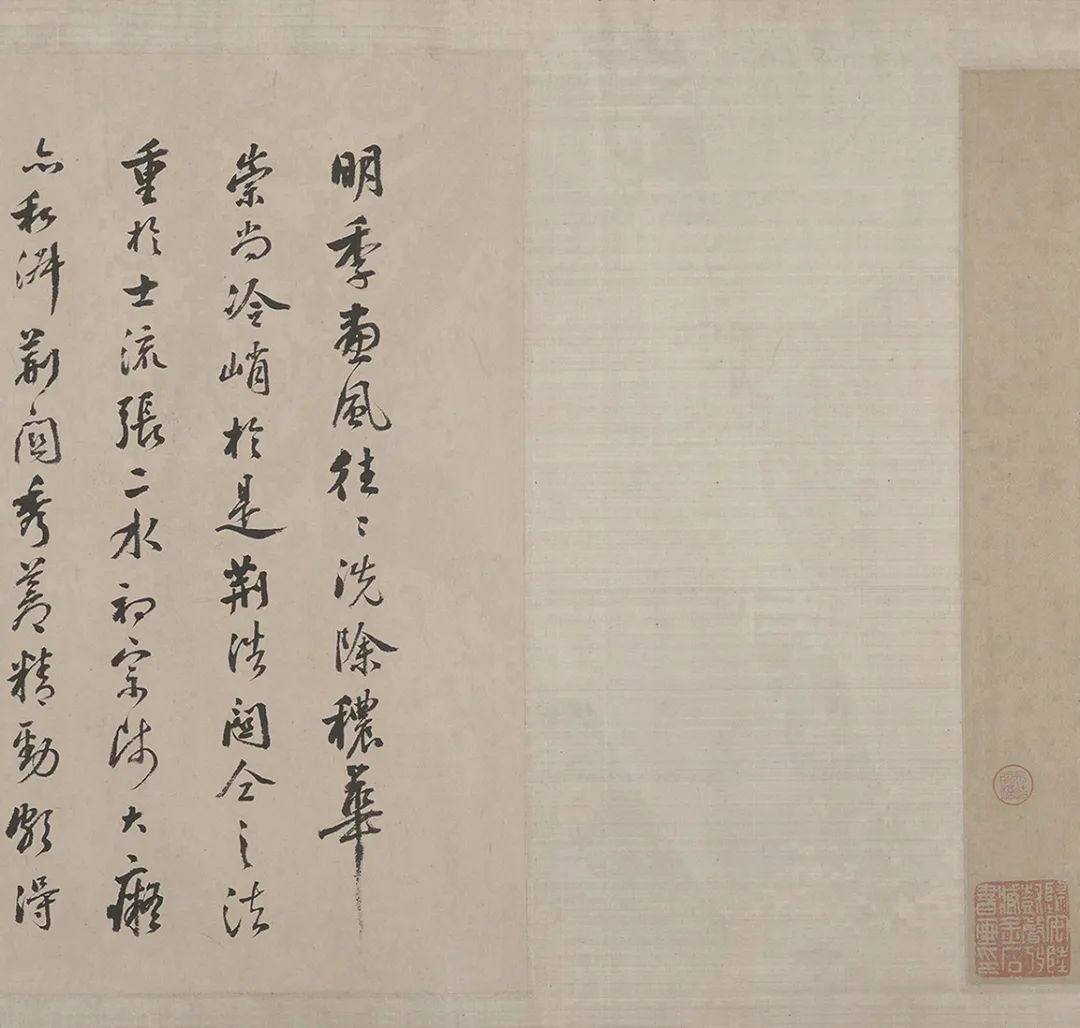 明季畫風往〻洗除穠華
崇尚冷峭於是荆浩關仝之法
重於士流張二水初宗師大癡
亦私淑荆關秀蒼精勁頗得